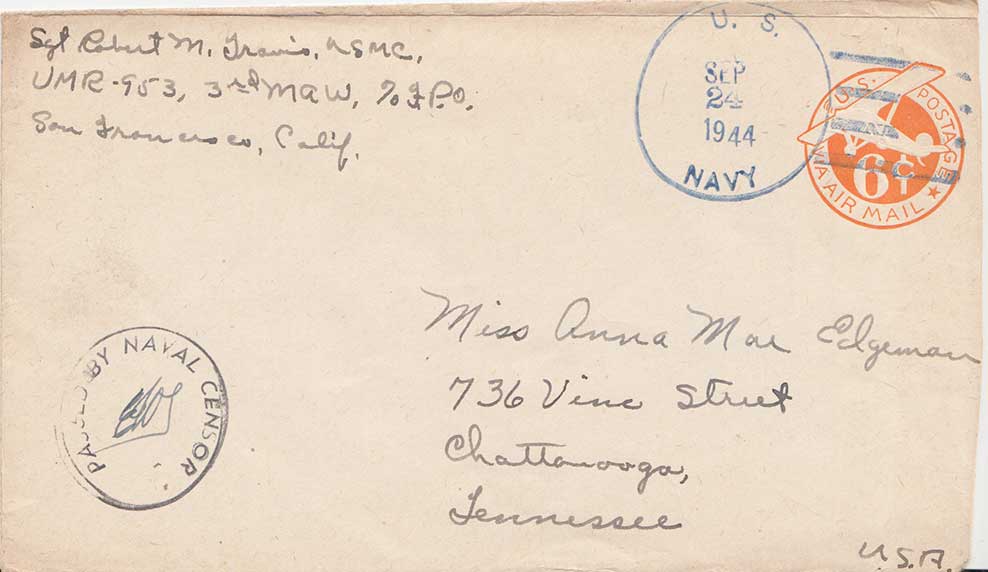 Sgt Robert M. Travis, USMC,
VMR-953, 3rd MAW, c/o F.P.O.
San Francisco, Calif.
U. S.
SEP
24
1944
NAVY
U.S. POSTAGE
6¢
VIA AIR MAIL
Miss Anna Mae Edgeman
736 Vine Street
Chattanooga,
Tennessee
U.S.A.
PASSED BY NAVAL CENSOR